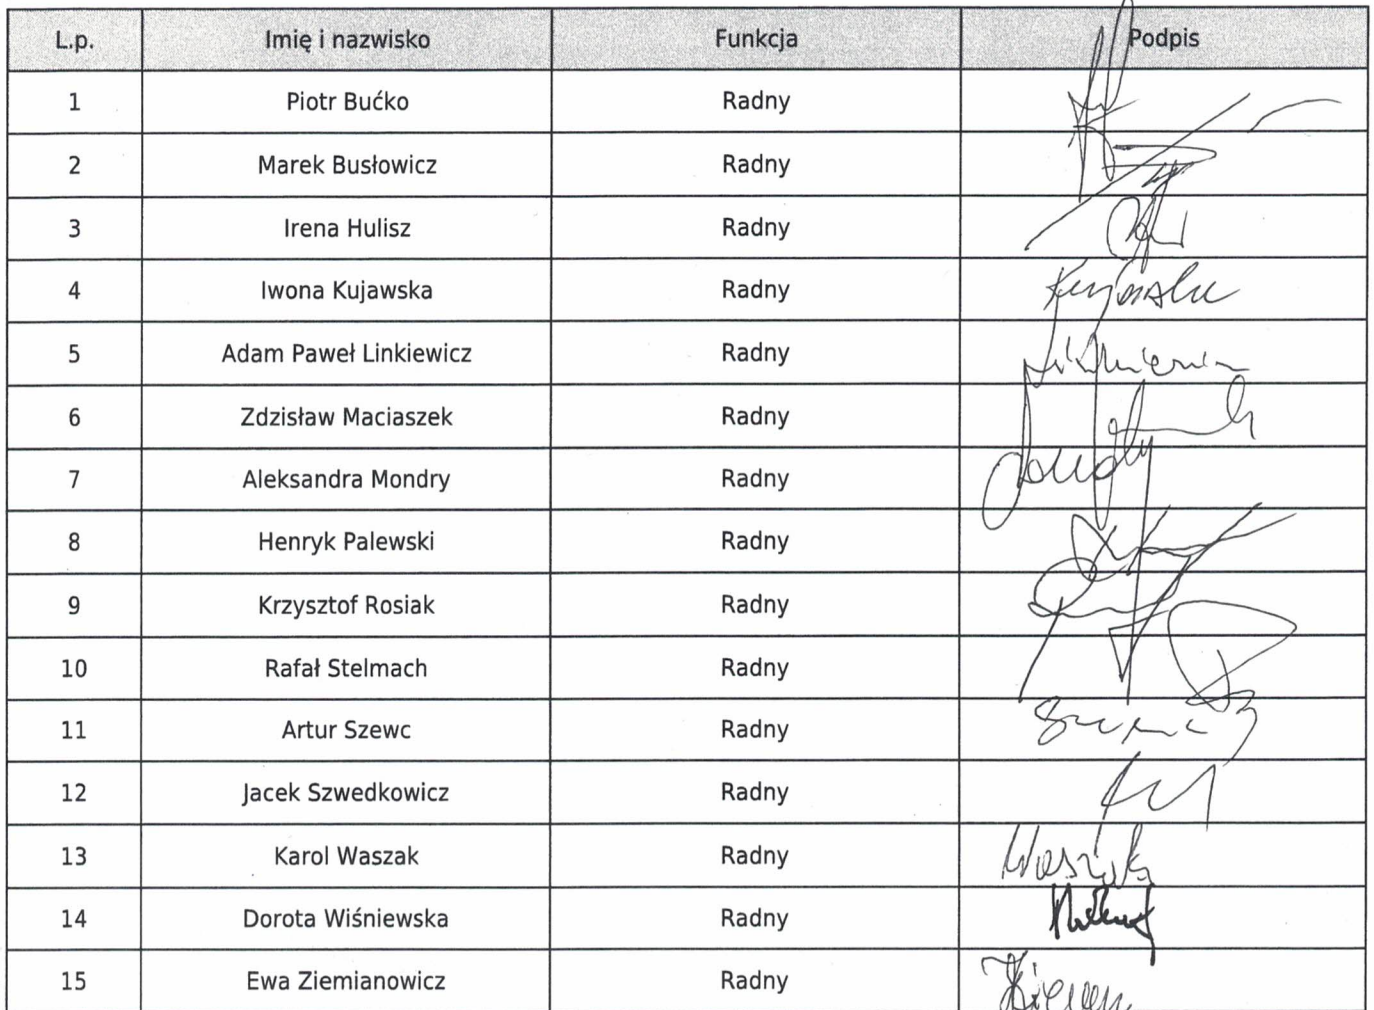 L.p. Imię i nazwisko Funkcja Podpis
1 Piotr Bućko Radny
2 Marek Busłowicz Radny
3 Irena Hulisz Radny
4 Iwona Kujawska Radny Kujawska
5 Adam Paweł Linkiewicz Radny
6 Zdzisław Maciaszek Radny
7 Aleksandra Mondry Radny
8 Henryk Palewski Radny
9 Krzysztof Rosiak Radny
10 Rafał Stelmach Radny
11 Artur Szewc Radny
12 Jacek Szwedkowicz Radny
13 Karol Waszak Radny Waszak
14 Dorota Wiśniewska Radny
15 Ewa Ziemianowicz Radny